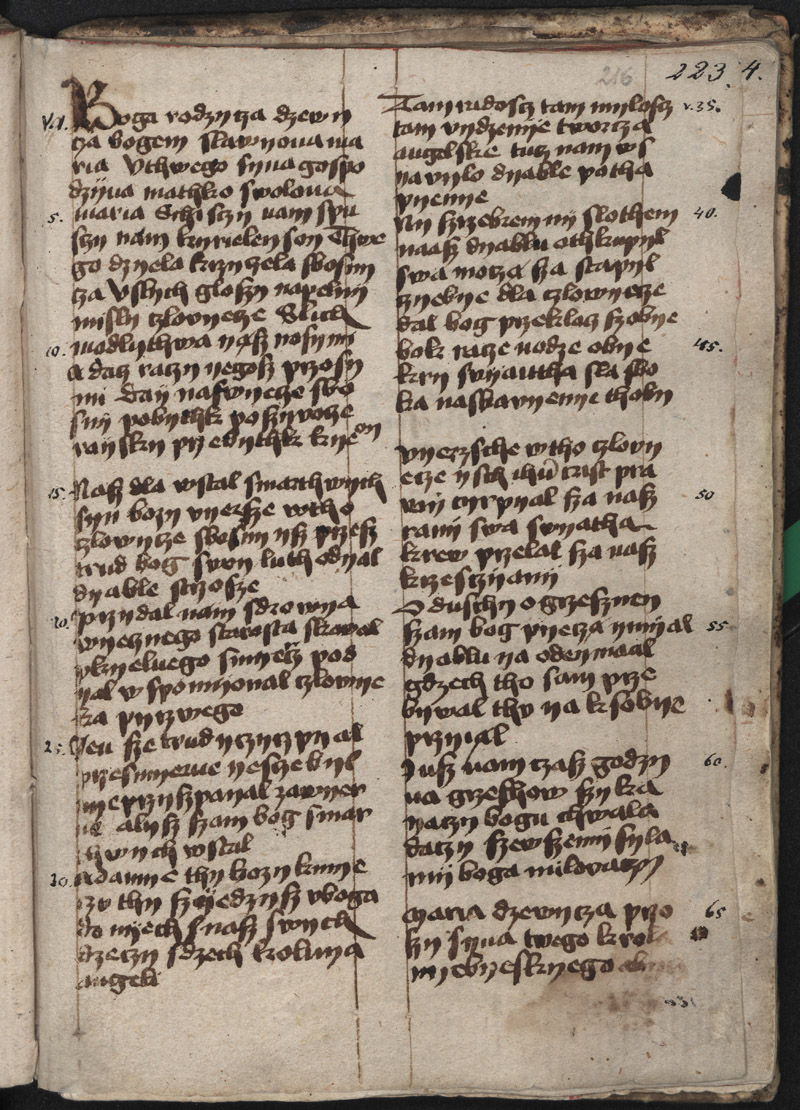 216
223. 4.
v.1.
Boga rodzycza dzewy
cza bogem slawyona ma
ria Vthwego syna gospo
dzyna mathko swolona
5.
maria Schi sczy nam spu
sczy nam kyrieleyson Thwe
go dzyela krzyczela sbosny
cza Vslysch glossy napelny
misly czlowyecze Slisch
10.
modlythwa yąsz nosymi
A dacz raczy yegosz prosy
mi day naswyecze sbo
sny pobythk posziwocze
rayski przebythk kyrieon
15.
Nasz dla wstal smarthwych
syn bozy vyersze wtho
czlowycze sbosny ysz przesz
trud bog swoy luth odyal
dyable strosze
20.
Przydal nam sdrowya
wyecznego starosta skowal
pkyelnego smyercz pod
yal wspomyonal czlowye
ka pyrzwego
25.
Jen sze trudy czyrzpyal
przesmyerne yescze byl
nye przyszpeyal zawyer
ne alysz szam bog smar
thwych wstal
30.
Adamye thy bozy kmye
czy thy szyedzysz vboga
do myech s nasz swych
dzeczy sdzech kroluya
angeli
Tam radoscz tam myloscz
v.35.
tam vydzenye tworcza
angelske tucz nam ws
yavylo dyable potha
pyenye
Ny szrzebrem ny slothem
40.
naasz dyablu othkupyl
swa mocza sza stapyl
czyebye dla czlowycze
dal bog przeklocz szobye
bok racze nodze obye
45.
kry swyantha sla sbo
ka nasbawyenye thoby
vyerzsche wtho czlowy
ecze ysch ihu crist pra
wy cyrpyal sza nasz
50
rany swa swyatha
krew przelal sza nasz
krzesczyany
O duschy o grzesznej
szam bog pyecza ymyal
55
dyablu ya odeymaal
gdzech tho sam prze
bywal thv ya ksobye
przyyal
Jusz nam czasz godzy
60.
na grzeshow szy ka
yaczy bogu chwala
daczy szewszemy syla
my boga milovaczy
Maria dzewycza pro
65
szy syna twego krola
nyebyeskyego